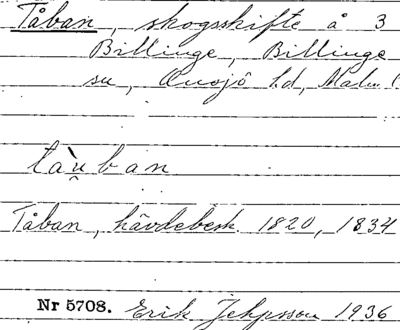 Tåban, skogsskifte å 3
Billinge, Billinge
sn, Onsjö hd, Malm.
ta̖u̯ban
Tåban, hävdebesk. 1820, 1834
Nr 5708. Erik Jeppsson 1936